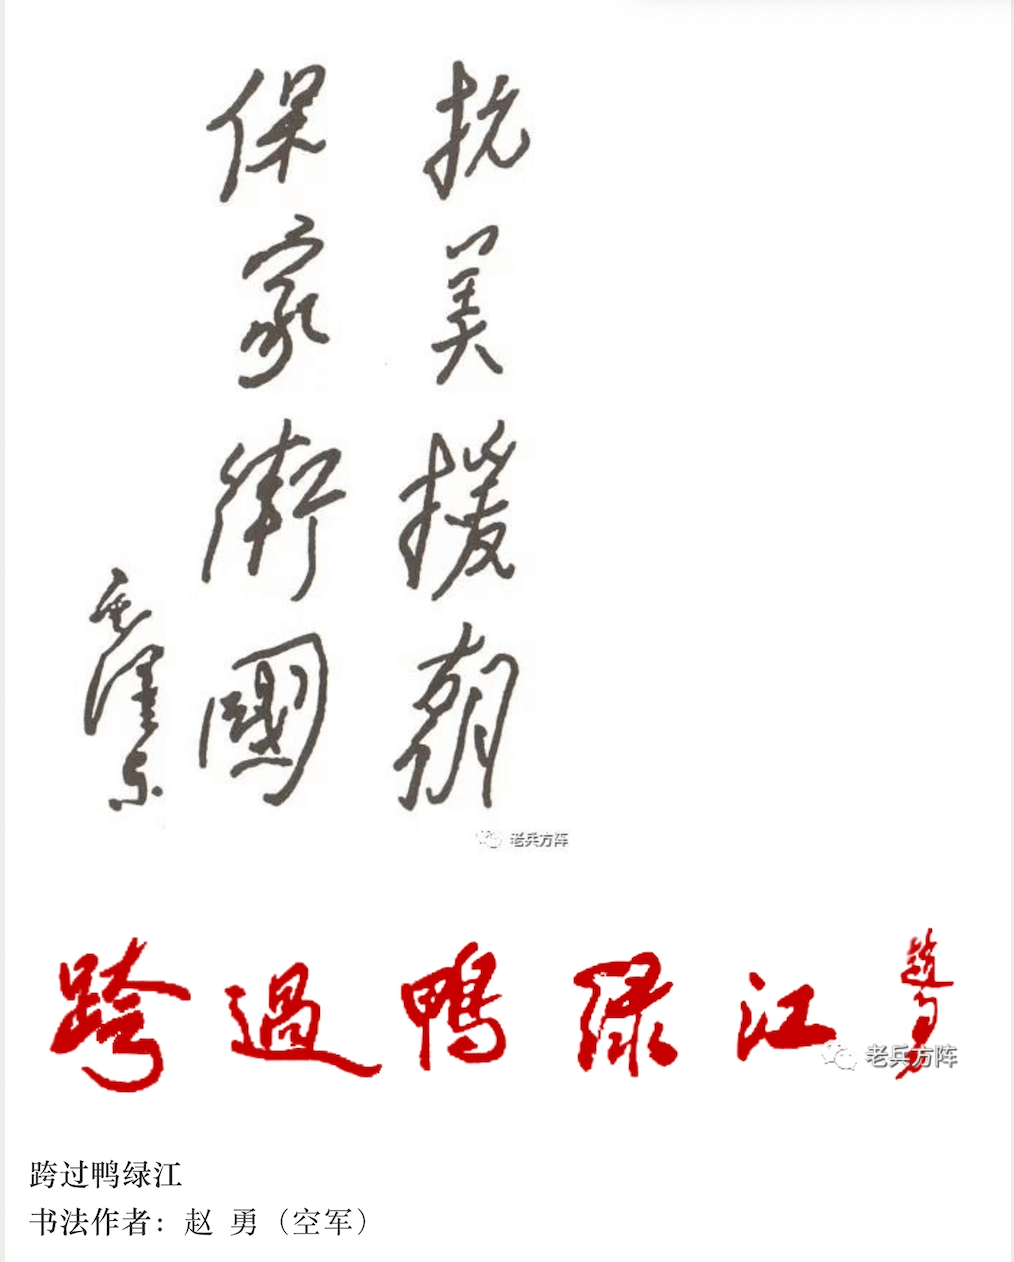 抗美援朝
保家衛國
毛澤东
老兵方阵
跨過鴨绿江
趙勇
老兵方阵
跨过鸭绿江
书法作者：赵 勇（空军）